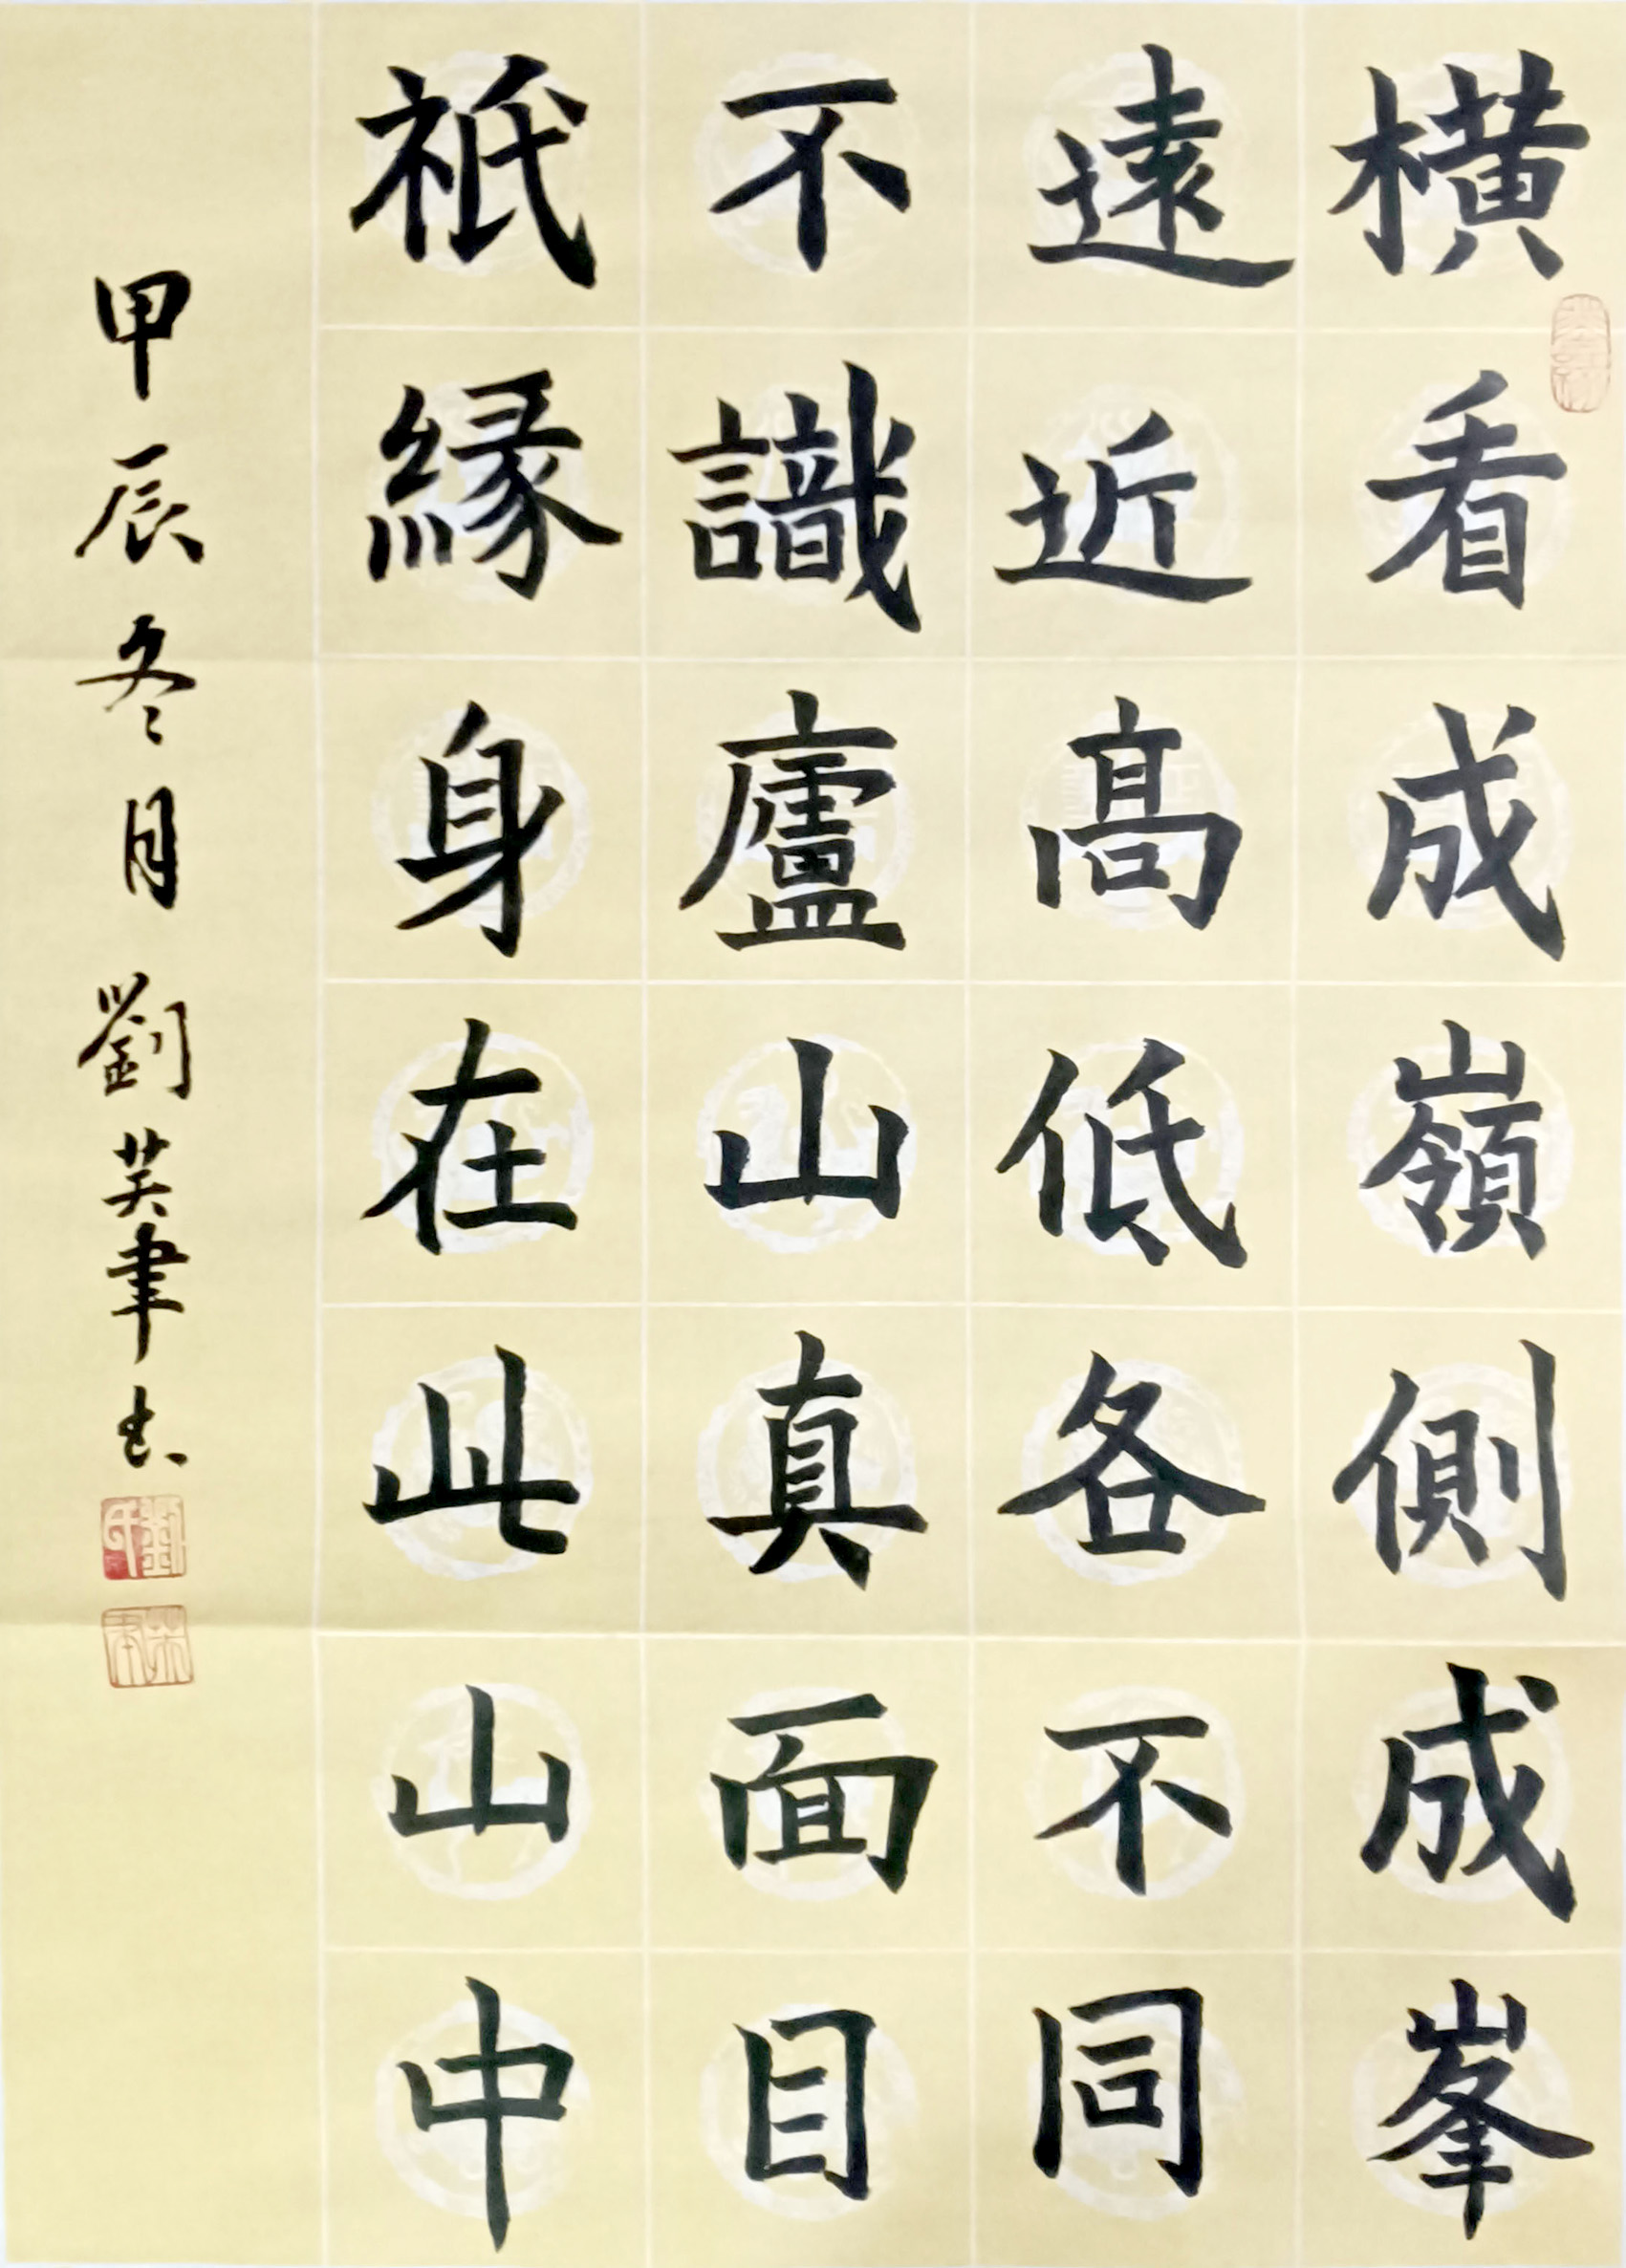 橫看成嶺側成峯
遠近高低各不同
不識廬山真面目
祇緣身在此山中
甲辰冬月劉英聿书
劉氏